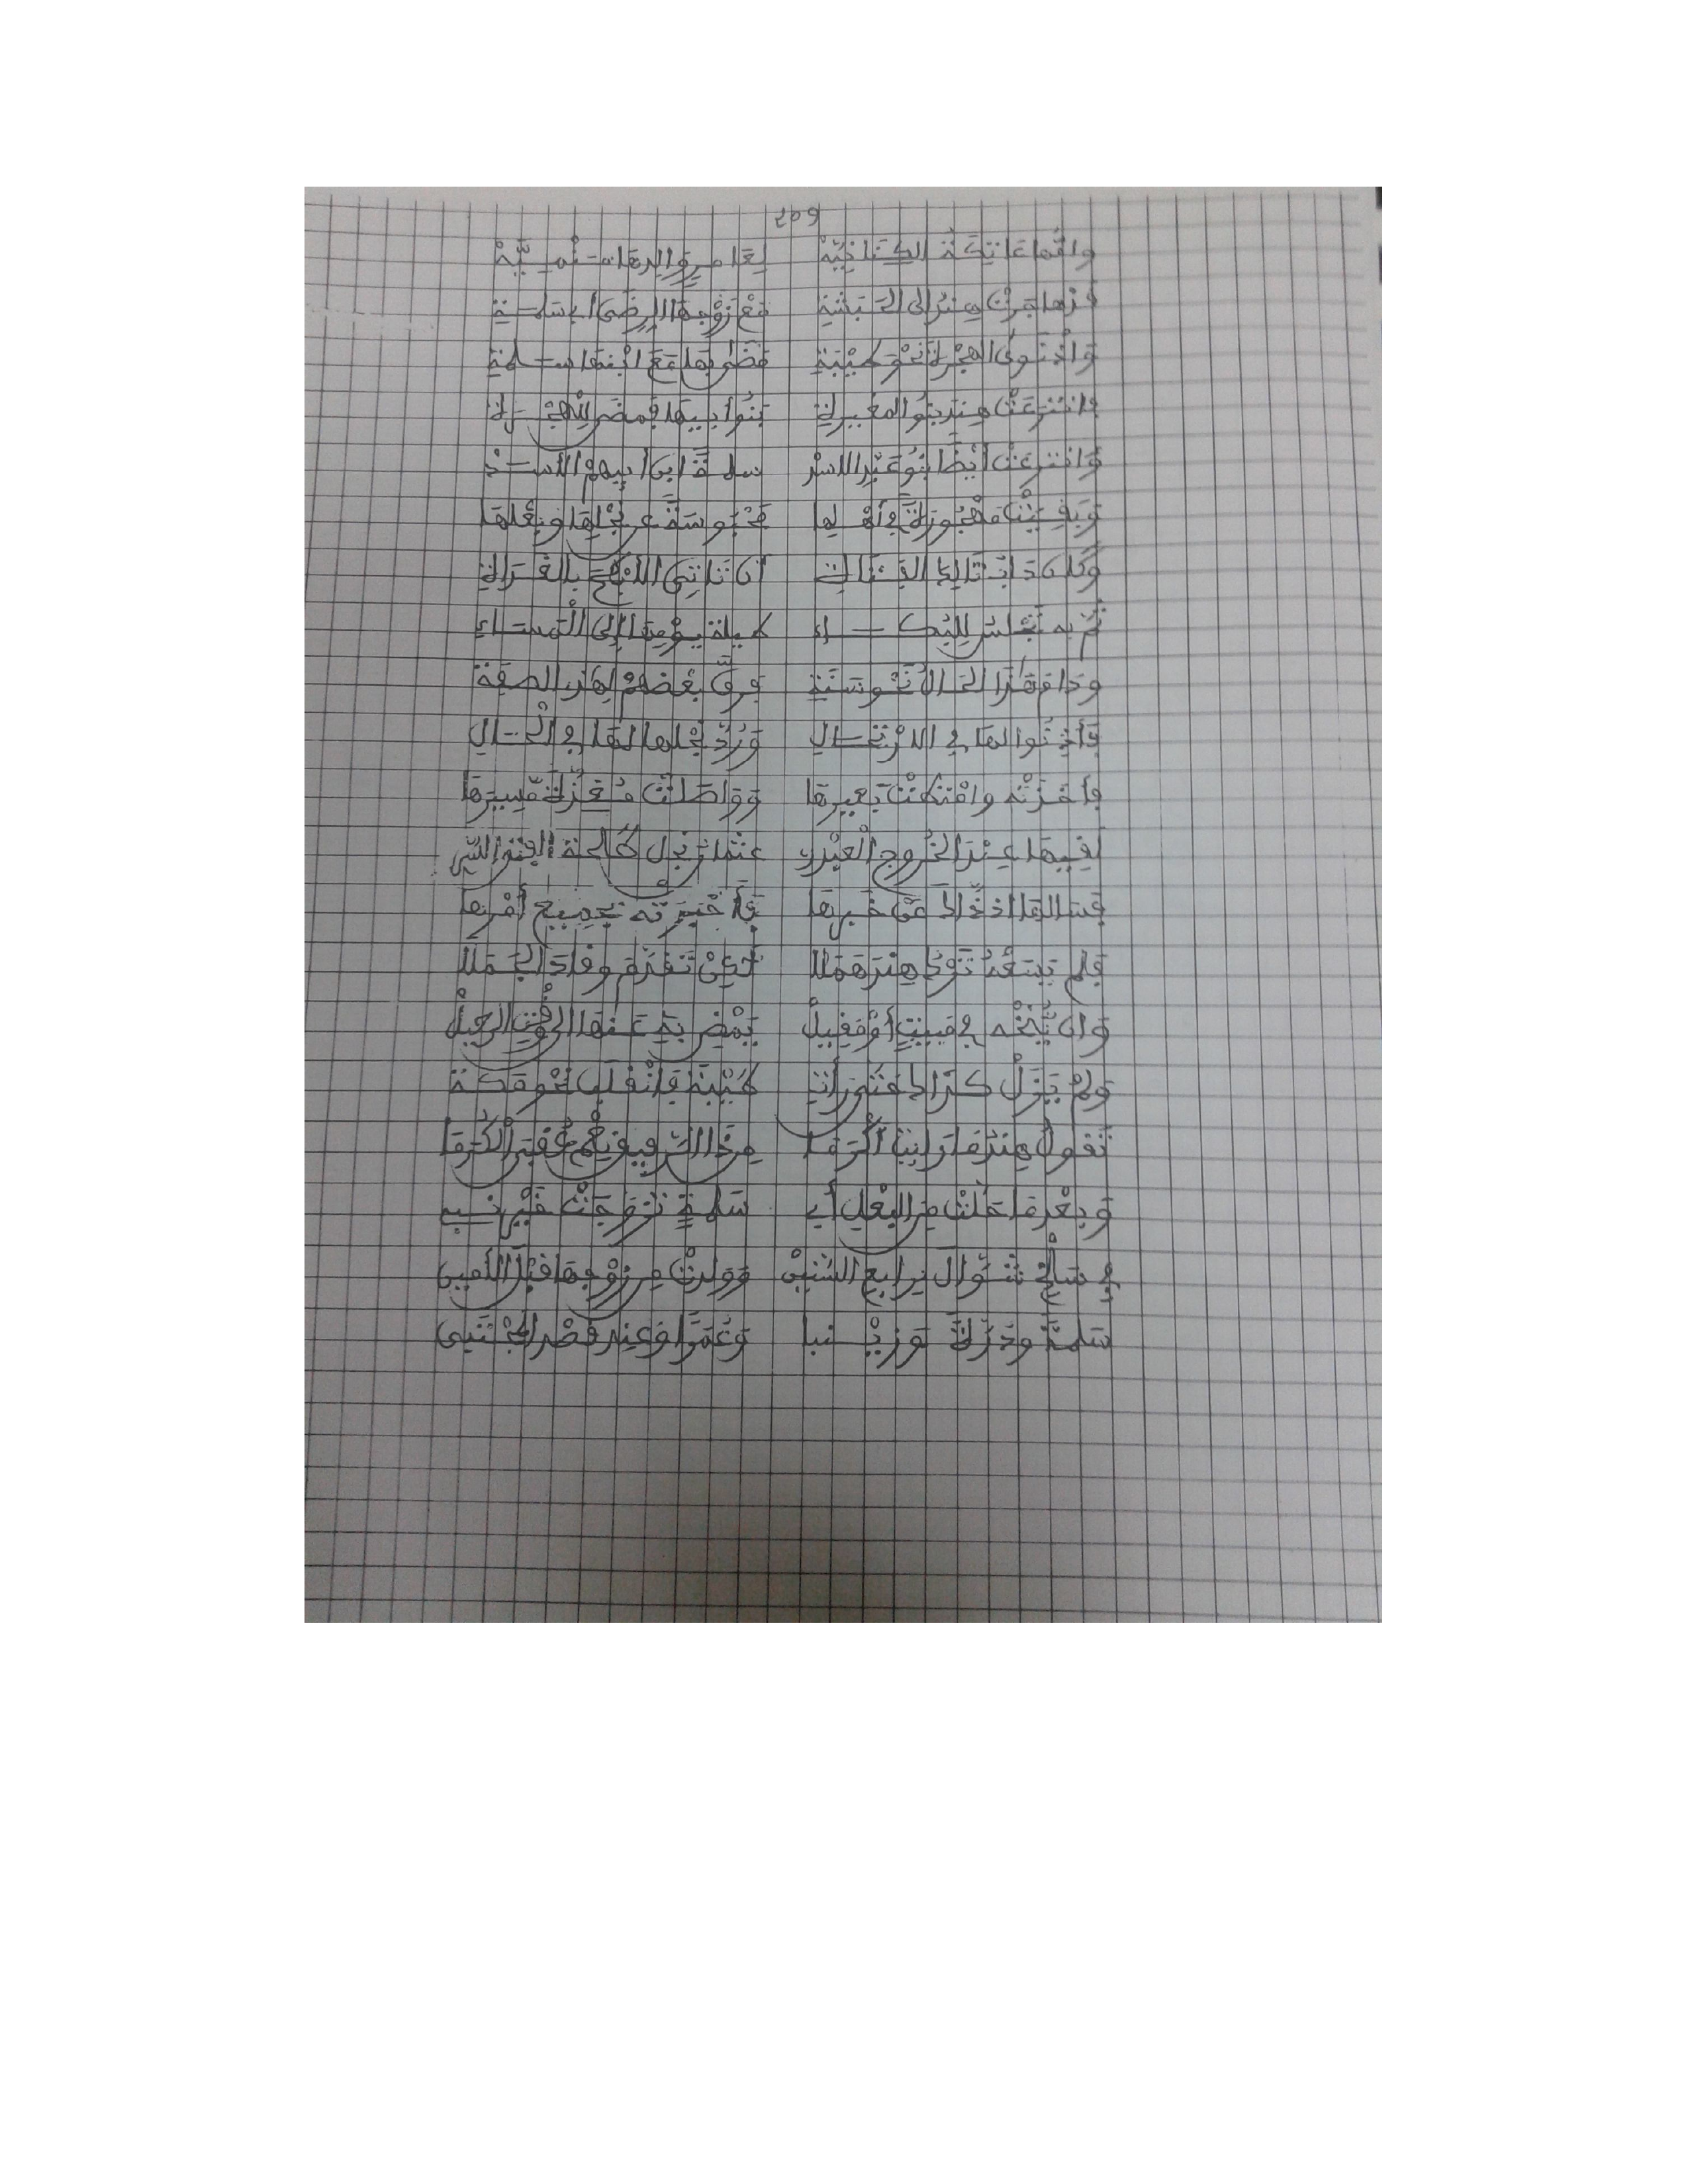 209
وامها عاتكة الكنانية لعامر والدها منمية
قد هاجرت هند إلى الحبشة مع زوجها الرضى أبي سلمة
واذ نوى الهجرة نحو طيبة مضى بها مع ابنها سلمة
فانتزعت هند بنو المغيرة بنو أبيها فمضى للهجرة
وانتزعت أيضا بنو عبد الاسد سلمة ابن أبيهم الأسد
وبقيت مهجورة في أهلها محبوسة عن نجلها وبعلها
وكان دأب تالك الفتاة أن تاتي الأبطح بالغداة
ثم به تجلس للبكاء طيلة يومها إلى المساء
ودام هذا الحال نحو سنة فرق بعضهم لهذه الصفة
فأذنوا لها في الارتحال ورد نجلها لها في الحال
فأخذته وامتطت بعيرها وواصلت مغذة مسيرها
لقيها عند الخروج العبدري عثمان نجل طلحة الفتى السري
فسالها اذ ذاك عن خبرها فأخبرته بجميع أمرها
فلم يسعه ترك هند هملا حتى تقدم وقاد الجملا
وان ينخه في مبيت أو مقيل يمض به عنها الى وقت الرحيل
ولم يزل كذاك حتى رأت طيبة فانقلب نحو مكة
تقول هند ما رايت أكرما من ذاك فيمن عقبه الكرما
وبعد ما حلت من البعل أبي سلمة تزوجت خير نبي
في سلخ شوال برابع السنين وولدت من زوجها قبل الأمين
سلمة ودرة وزينبا وعمرا وعند قصر المجتبى